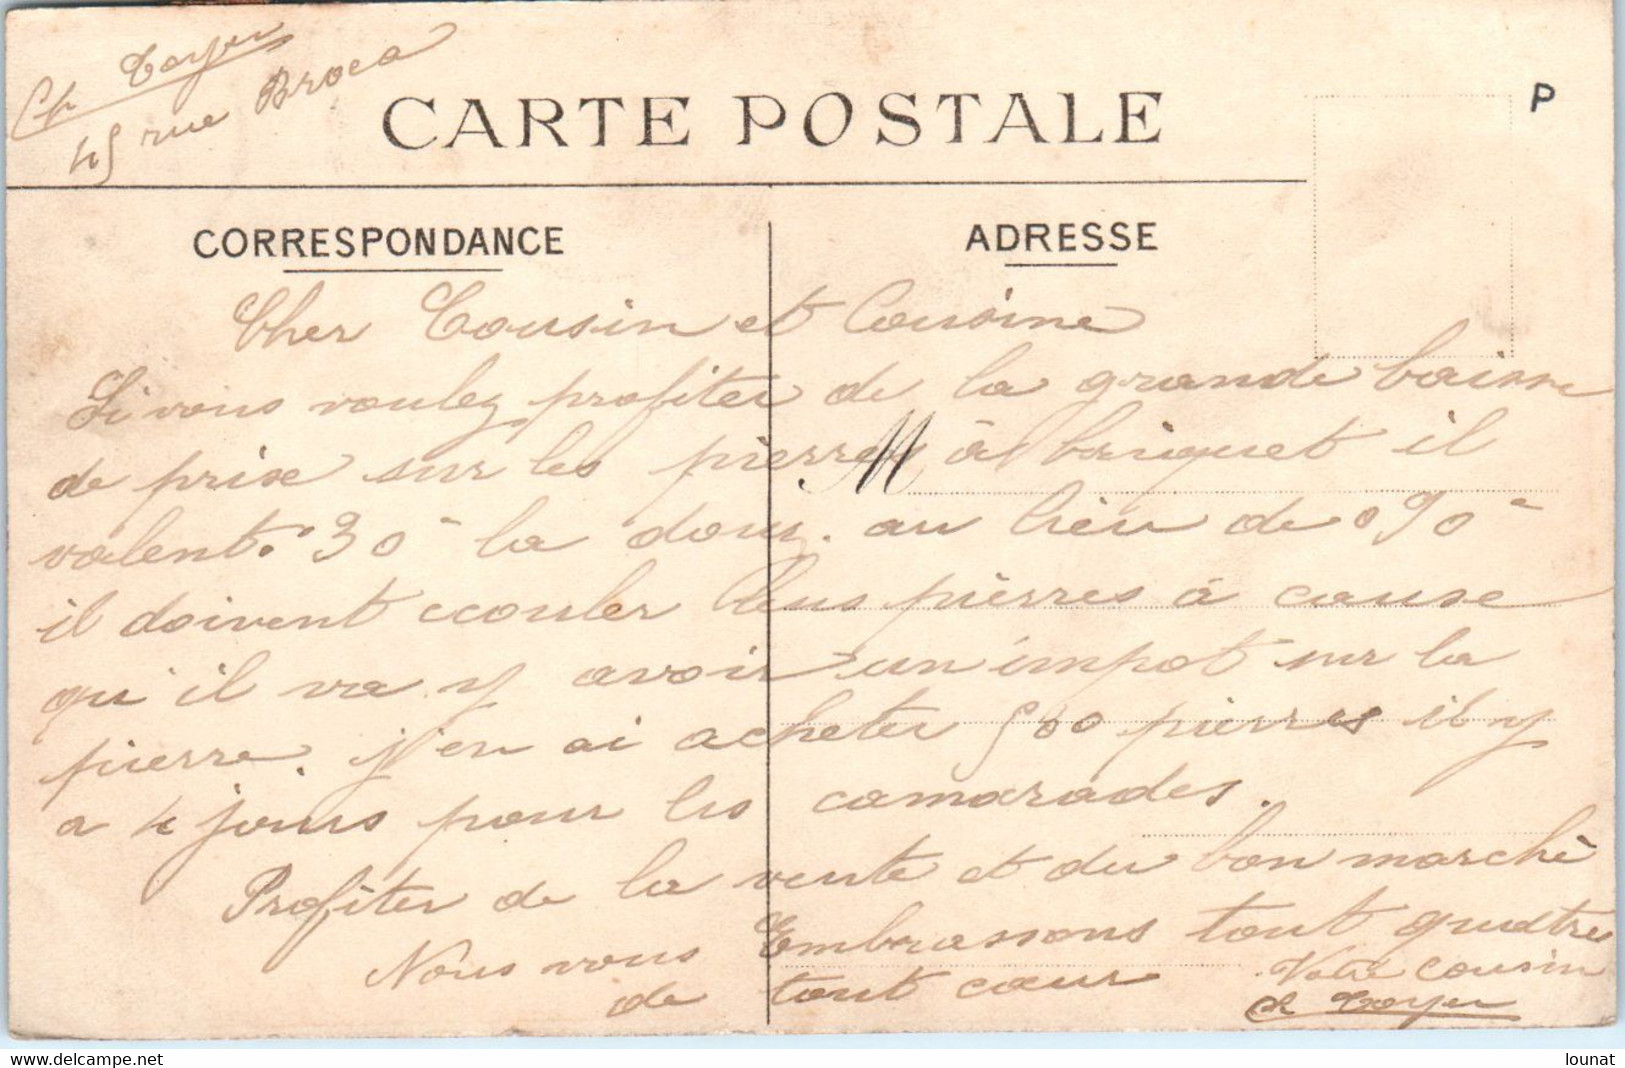 Ch Toyer
45 rue Broca
CARTE POSTALE
P
CORRESPONDANCE
ADRESSE
M
Cher Cousin et Cousine
Si vous voulez profiter de la grande baisse
de prise sur les pierres à briquet il
valent. 0 30 c la douz. au lieu de 0 90 c
il doivent ecouler leus pierres à cause
qu'il va y avoir un impot sur la
pierre. j'en ai acheter 500 pierres il y
a 4 jours pour les camarades.
Profiter de la vente et du bon marchè
Nous vous Embrassons tout quatres
de tout cœur Votre cousin
Ch Toyer
lounat